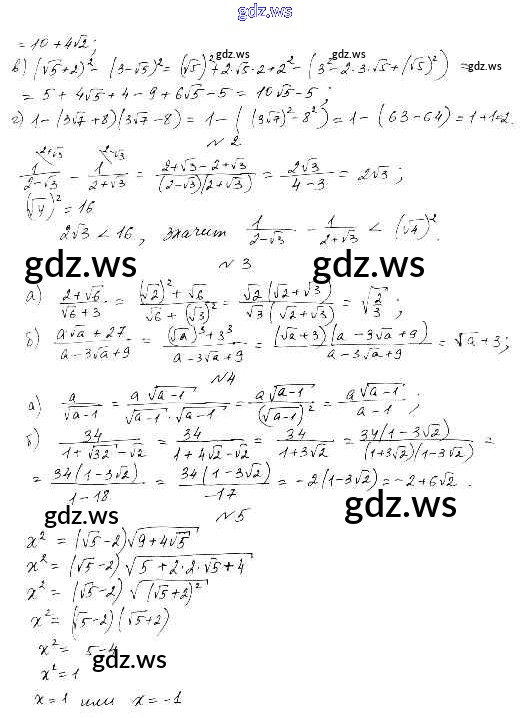 gdz.ws
= 10 + 4√2;
gdz.ws gdz.ws
в) (√5+2)² - (3-√5)² = (√5)² + 2·√5·2 + 2² - (3² - 2·3·√5 + (√5)²) = gdz.ws
= 5 + 4√5 + 4 - 9 + 6√5 - 5 = 10√5 - 5;
г) 1 - (3√7+8)(3√7-8) = 1 - ((3√7)² - 8²) = 1 - (63-64) = 1+1=2.
№ 2
1/(2-√3) - 1/(2+√3) = (2+√3-2+√3)/((2-√3)(2+√3)) = 2√3/(4-3) = 2√3;
(√4)² = 16
2√3 < 16, значит 1/(2-√3) - 1/(2+√3) < (√4)².
gdz.ws № 3 gdz.ws
а) (2+√6)/(√6+3) = ((√2)²+√6)/(√6+(√3)²) = √2(√2+√3)/(√3(√2+√3)) = √(2/3);
б) (a√a+27)/(a-3√a+9) = ((√a)³+3³)/(a-3√a+9) = (√a+3)(a-3√a+9)/(a-3√a+9) = √a+3;
№4
а) a/√(a-1) = a√(a-1)/(√(a-1)·√(a-1)) = a√(a-1)/(√(a-1))² = a√(a-1)/(a-1);
б) 34/(1+√32-√2) = 34/(1+4√2-√2) = 34/(1+3√2) = 34(1-3√2)/((1+3√2)(1-3√2)) =
= 34(1-3√2)/(1-18) = 34(1-3√2)/(-17) = -2(1-3√2) = -2+6√2.
gdz.ws № 5 gdz.ws
x² = (√5-2)√(9+4√5)
x² = (√5-2)√(5+2·2·√5+4)
x² = (√5-2)√((√5+2)²)
x² = (√5-2)(√5+2)
x² = 5-4
gdz.ws
x² = 1
x = 1 или x = -1